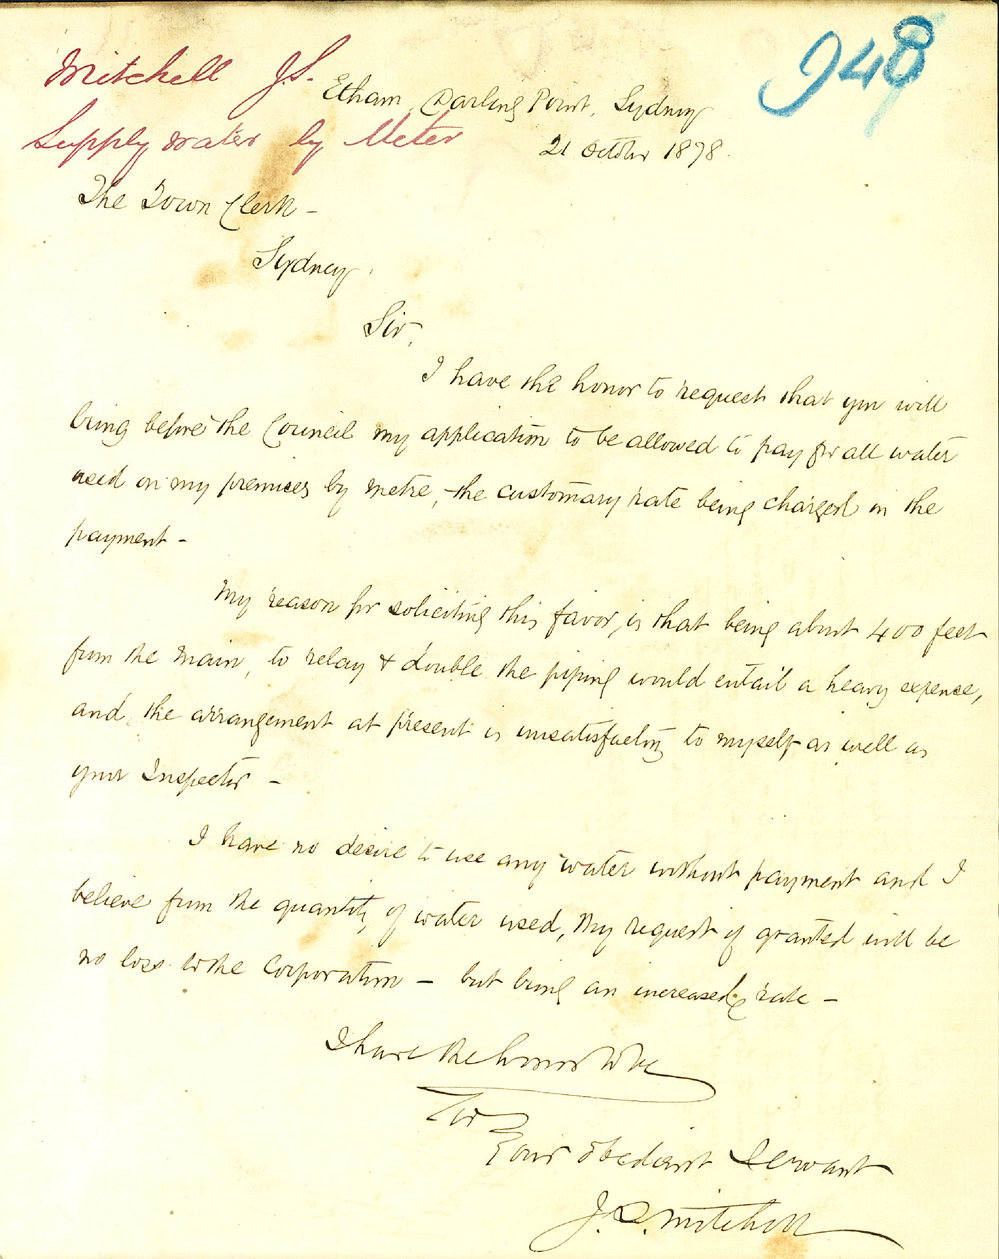 948
Mitchell J.S.
Supply water by Meter
Etham, Darling Point, Sydney
21 October 1878.
The Town Clerk -
Sydney.
Sir,
I have the honor to request that you will
bring before the Council my application to be allowed to pay for all water
used on my premises by metre, the customary rate being charged in the
payment -
My reason for soliciting this favor, is that being about 400 feet
from the main, to relay & double the piping would entail a heavy expense,
and the arrangement at present is unsatisfactory to myself as well as
your Inspector -
I have no desire to use any water without payment and I
believe from the quantity of water used, my request if granted will be
no loss to the Corporation - but bring an increased rate -
I have the honor to be
Sir
Your obedient Servant
J. S. Mitchell